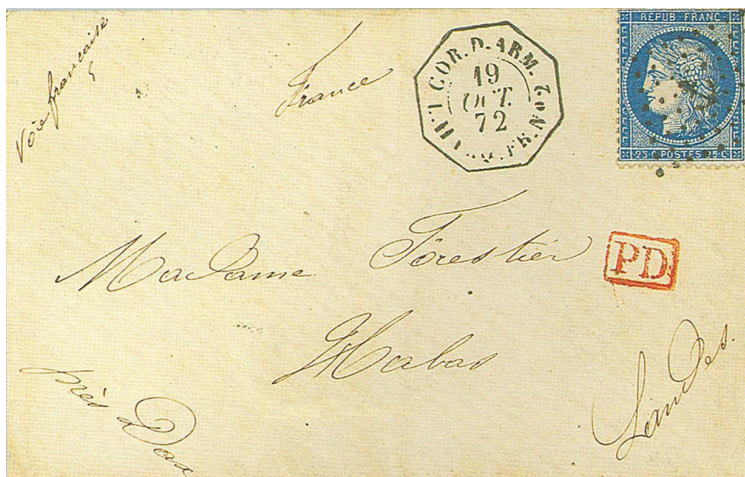 Voie française
France
COR. D. ARM.
19
OCT.
72
PAQ. FR. No 2
REPUB. FRANC.
25 POSTES 25 C
Madame Forestier
PD
Habas
près Dax
Landes.